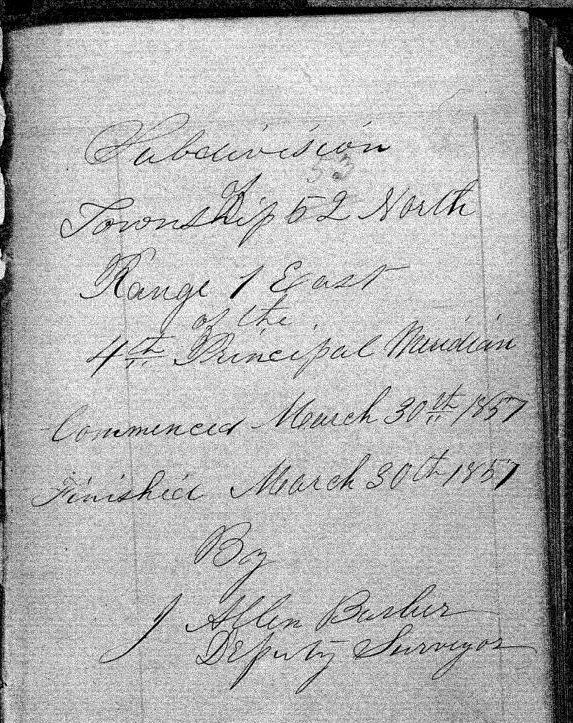 Subdivision
53
of
Township 52 North
Range 1 East
of the
4th Principal Meridian
Commenced March 30th 1857
Finished March 30th 1857
By
J Allen Barber
Deputy Surveyor